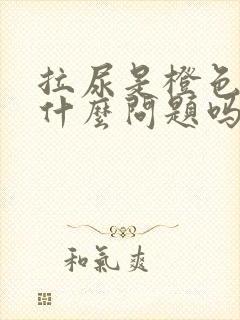 拉尿是橙色
什麼問題吗
和氣爽